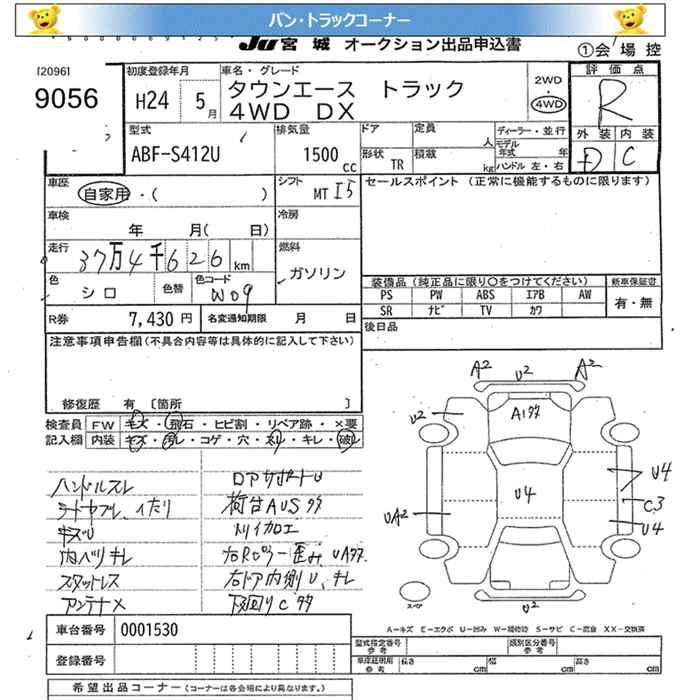 バン・トラックコーナー
JU 宮城 オークション出品申込書 ①会場控
[2096]
9056
初度登録年月 H24 5月
車名・グレード タウンエース トラック
4WD DX
2WD ・ 4WD
評価点 R
外装 内装
D C
型式 ABF-S412U
排気量 1500 cc
ドア 定員 人
形状 TR 積載 kg
ディーラー・並行
モデル年式 年
ハンドル 左・右
車歴 自家用・( )
シフト MT I5
セールスポイント (正常に機能するものに限ります)
車検 年 月( 日)
冷房
走行 37万4千626km
燃料 ガソリン
色 シロ 色替 色コード W09
装備品 (純正品に限り○をつけてください) 新車保証書
PS PW ABS エアB AW 有・無
SR ナビ TV カワ
R券 7,430円 名変通知期限 月 日
後日品
注意事項申告欄(不具合内容等は具体的に記入して下さい)
修復歴 有 [箇所
検査員 FW キズ・飛石・ヒビ割・リペア跡・X要
記入欄 内装 キズ・汚レ・コゲ・穴・スレ・キレ・破レ
ハンドルスレ
キズU
内ヘリキレ
スタットレス
アンテナX
ロアサポートU
荷台AUSサビ
右ドア内側U、キレ
下回りCサビ
A2 U2 A2
U2 A1サビ
U4 U4
UA2 C3
U4
U2
スペア
A－キズ E－エクボ U－凹み W－補修跡 S－サビ C－腐食 XX－交換済
車台番号 0001530
登録番号
型式指定番号 参考 類別区分番号 参考
車庫証明用 参考 長さ cm 幅 cm 高さ cm
希望出品コーナー (コーナーは各会場により異なります。)